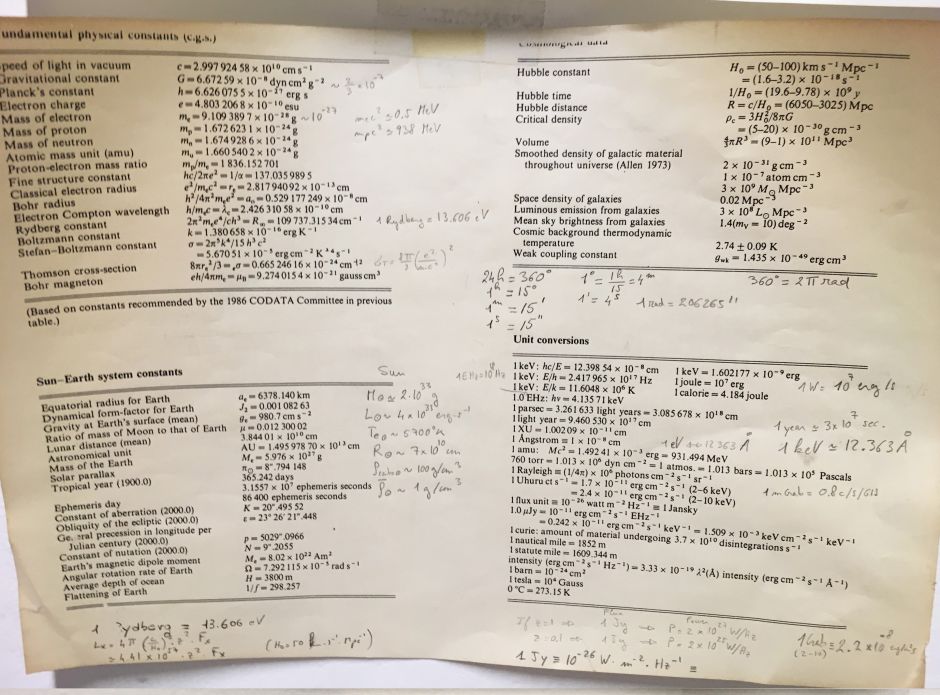 undamental physical constants (c.g.s.)
peed of light in vacuum c = 2.997 924 58 × 10¹⁰ cm s⁻¹
Gravitational constant G = 6.672 59 × 10⁻⁸ dyn cm² g⁻²
Planck's constant h = 6.626 075 5 × 10⁻²⁷ erg s
Electron charge e = 4.803 206 8 × 10⁻¹⁰ esu
Mass of electron mₑ = 9.109 389 7 × 10⁻²⁸ g ~ 10⁻²⁷
Mass of proton mₚ = 1.672 623 1 × 10⁻²⁴ g
Mass of neutron mₙ = 1.674 928 6 × 10⁻²⁴ g
Atomic mass unit (amu) mᵤ = 1.660 540 2 × 10⁻²⁴ g
Proton-electron mass ratio mₚ/mₑ = 1 836.152 701
Fine structure constant hc/2πe² = 1/α = 137.035 989 5
Classical electron radius e²/mₑc² = rₑ = 2.817 940 92 × 10⁻¹³ cm
Bohr radius h²/4π²mₑe² = a₀ = 0.529 177 249 × 10⁻⁸ cm
Electron Compton wavelength h/mₑc = λₑ = 2.426 310 58 × 10⁻¹⁰ cm
Rydberg constant 2π²mₑe⁴/ch³ = R∞ = 109 737.315 34 cm⁻¹
Boltzmann constant k = 1.380 658 × 10⁻¹⁶ erg K⁻¹
Stefan-Boltzmann constant σ = 2π⁵k⁴/15h³c²
= 5.670 51 × 10⁻⁵ erg cm⁻² K⁻⁴ s⁻¹
Thomson cross-section 8πrₑ²/3 = σ = 0.665 246 16 × 10⁻²⁴ cm²
Bohr magneton eh/4πmₑ = μ_B = 9.274 015 4 × 10⁻²¹ gauss cm³
mₑc² ≃ 0.5 MeV
mₚc² ≃ 938 MeV
1 Rydberg = 13.606 eV
(Based on constants recommended by the 1986 CODATA Committee in previous
table.)
Cosmological data
Hubble constant H₀ = (50–100) km s⁻¹ Mpc⁻¹
= (1.6–3.2) × 10⁻¹⁸ s⁻¹
Hubble time 1/H₀ = (19.6–9.78) × 10⁹ y
Hubble distance R = c/H₀ = (6050–3025) Mpc
Critical density ρc = 3H₀²/8πG
= (5–20) × 10⁻³⁰ g cm⁻³
Volume 4/3πR³ = (9–1) × 10¹¹ Mpc³
Smoothed density of galactic material
throughout universe (Allen 1973) 2 × 10⁻³¹ g cm⁻³
1 × 10⁻⁷ atom cm⁻³
3 × 10⁹ M⊙ Mpc⁻³
Space density of galaxies 0.02 Mpc⁻³
Luminous emission from galaxies 3 × 10⁸ L⊙ Mpc⁻³
Mean sky brightness from galaxies 1.4(m_V = 10) deg⁻²
Cosmic background thermodynamic
temperature 2.74 ± 0.09 K
Weak coupling constant g_wk = 1.435 × 10⁻⁴⁹ erg cm³
24h = 360° 1° = 1h/15 = 4ᵐ 360° = 2π rad
1ʰ = 15° 1' = 4ˢ 1 rad = 206265"
1ᵐ = 15'
1ˢ = 15"
Sun–Earth system constants
Equatorial radius for Earth aₑ = 6378.140 km
Dynamical form-factor for Earth J₂ = 0.001 082 63
Gravity at Earth's surface (mean) gₑ = 980.7 cm s⁻²
Ratio of mass of Moon to that of Earth μ = 0.012 300 02
Lunar distance (mean) 3.844 01 × 10¹⁰ cm
Astronomical unit AU = 1.495 978 70 × 10¹³ cm
Mass of the Earth Mₑ = 5.976 × 10²⁷ g
Solar parallax π⊙ = 8".794 148
Tropical year (1900.0) 365.242 days
3.1557 × 10⁷ ephemeris seconds
Ephemeris day 86 400 ephemeris seconds
Constant of aberration (2000.0) K = 20".495 52
Obliquity of the ecliptic (2000.0) ε = 23° 26' 21".448
Ge eral precession in longitude per
Julian century (2000.0) p = 5029".0966
Constant of nutation (2000.0) N = 9".2055
Earth's magnetic dipole moment Mₑ = 8.02 × 10²² Am²
Angular rotation rate of Earth Ω = 7.292 115 × 10⁻⁵ rad s⁻¹
Average depth of ocean H = 3800 m
Flattening of Earth 1/f = 298.257
Sun
M⊙ ≃ 2.10³³ g
L⊙ ~ 4 × 10³³ erg s⁻¹
T ~ 5700°K
R⊙ ~ 7 × 10¹⁰ cm
~ 100 g/cm³
ρ⊙ ~ 1 g/cm³
Unit conversions
1 keV: hc/E = 12.398 54 × 10⁻⁸ cm 1 keV = 1.602177 × 10⁻⁹ erg
1 keV: E/h = 2.417 965 × 10¹⁷ Hz 1 joule = 10⁷ erg
1 keV: E/k = 11.6048 × 10⁶ K 1 calorie = 4.184 joule
1.0 EHz: hν = 4.135 71 keV
1 W = 10⁷ erg/s
1 parsec = 3.261 633 light years = 3.085 678 × 10¹⁸ cm
1 light year = 9.460 530 × 10¹⁷ cm
1 year ≃ 3 × 10⁷ sec.
1 XU = 1.002 09 × 10⁻¹¹ cm
1 Ångstrom = 1 × 10⁻⁸ cm
1 eV ≃ 12363 Å 1 keV ≃ 12.363 Å
1 amu: Mc² = 1.492 41 × 10⁻³ erg = 931.494 MeV
760 torr = 1.013 × 10⁶ dyn cm⁻² = 1 atmos. = 1.013 bars = 1.013 × 10⁵ Pascals
1 Rayleigh = (1/4π) × 10⁶ photons cm⁻² s⁻¹ sr⁻¹
1 Uhuru ct s⁻¹ = 1.7 × 10⁻¹¹ erg cm⁻² s⁻¹ (2–6 keV)
= 2.4 × 10⁻¹¹ erg cm⁻² s⁻¹ (2–10 keV)
1 flux unit = 10⁻²⁶ watt m⁻² Hz⁻¹ = 1 Jansky
1.0 μJy = 10⁻¹¹ erg cm⁻² s⁻¹ EHz⁻¹
= 0.242 × 10⁻¹¹ erg cm⁻² s⁻¹ keV⁻¹ = 1.509 × 10⁻³ keV cm⁻² s⁻¹ keV⁻¹
1 curie: amount of material undergoing 3.7 × 10¹⁰ disintegrations s⁻¹
1 nautical mile = 1852 m
1 statute mile = 1609.344 m
intensity (erg cm⁻² s⁻¹ Hz⁻¹) = 3.33 × 10⁻¹⁹ λ²(Å) intensity (erg cm⁻² s⁻¹ Å⁻¹)
1 barn = 10⁻²⁴ cm²
1 tesla = 10⁴ Gauss
0 °C = 273.15 K
1 Rydberg = 13.606 eV
= 4.41 × 10⁵⁷ · z² · Fx
Flux Power
If z=1 ⇒ 1 Jy → P = 2 × 10²⁷ W/Hz
z=0.1 ⇒ 1 Jy → P = 2 × 10²⁵ W/Hz
1 Jy ≡ 10⁻²⁶ W. m⁻². Hz⁻¹ =